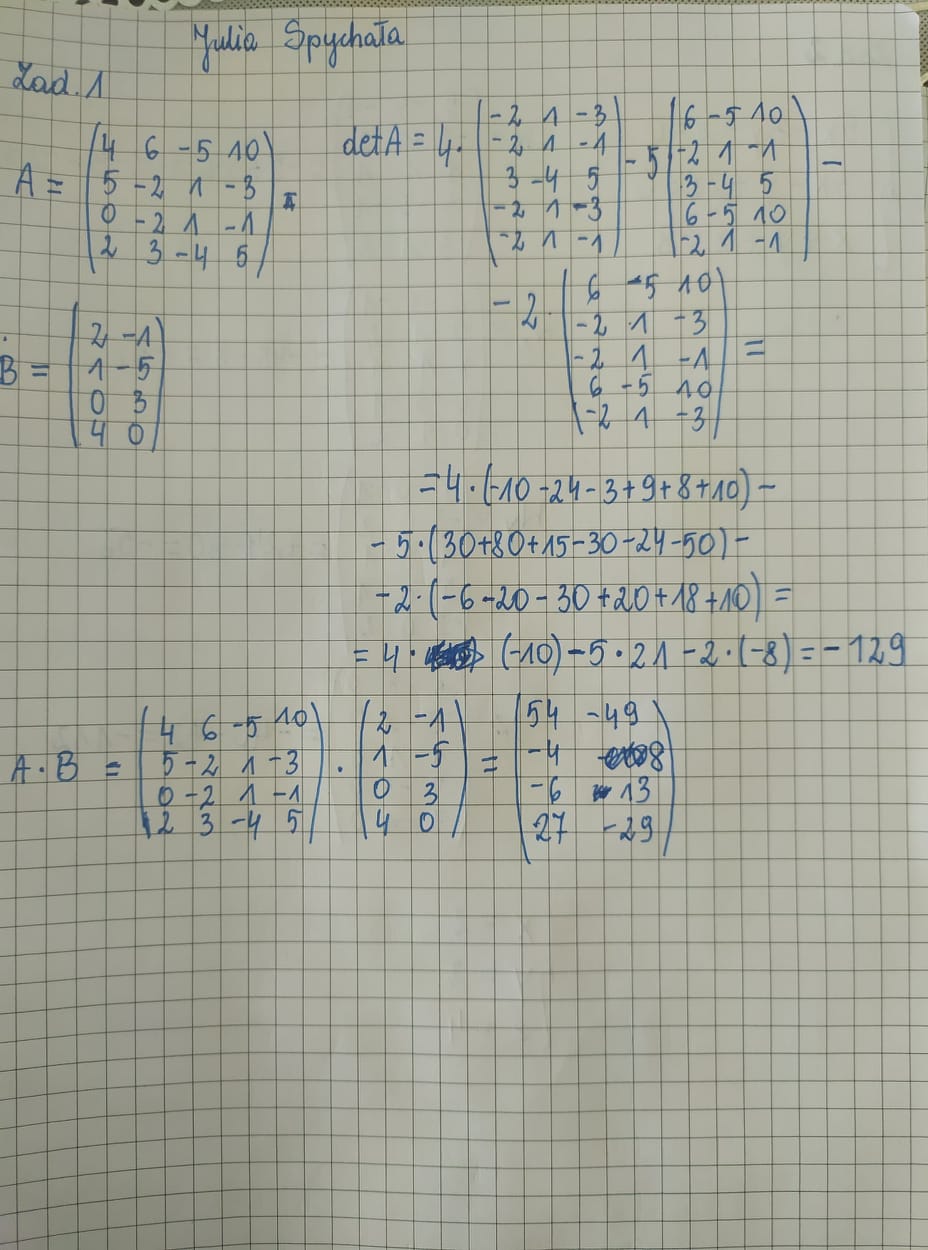 Julia Spychała
Zad. 1
A = (4 6 -5 10
5 -2 1 -3
0 -2 1 -1
2 3 -4 5) =
detA = 4 · |-2 1 -3
-2 1 -1
3 -4 5
-2 1 -3
-2 1 -1| - 5 |6 -5 10
-2 1 -1
3 -4 5
6 -5 10
-2 1 -1| -
- 2 · |6 -5 10
-2 1 -3
-2 1 -1
6 -5 10
-2 1 -3| =
B = (2 -1
1 -5
0 3
4 0)
= 4 · (-10 -24 - 3 + 9 + 8 + 10) -
- 5 · (30+80+15-30-24-50) -
- 2 · (-6 -20 - 30 + 20 + 18 + 10) =
= 4 · (-10) - 5 · 21 - 2 · (-8) = - 129
A · B = (4 6 -5 10
5 -2 1 -3
0 -2 1 -1
2 3 -4 5) · (2 -1
1 -5
0 3
4 0) = (54 -49
-4 8
-6 13
27 -29)